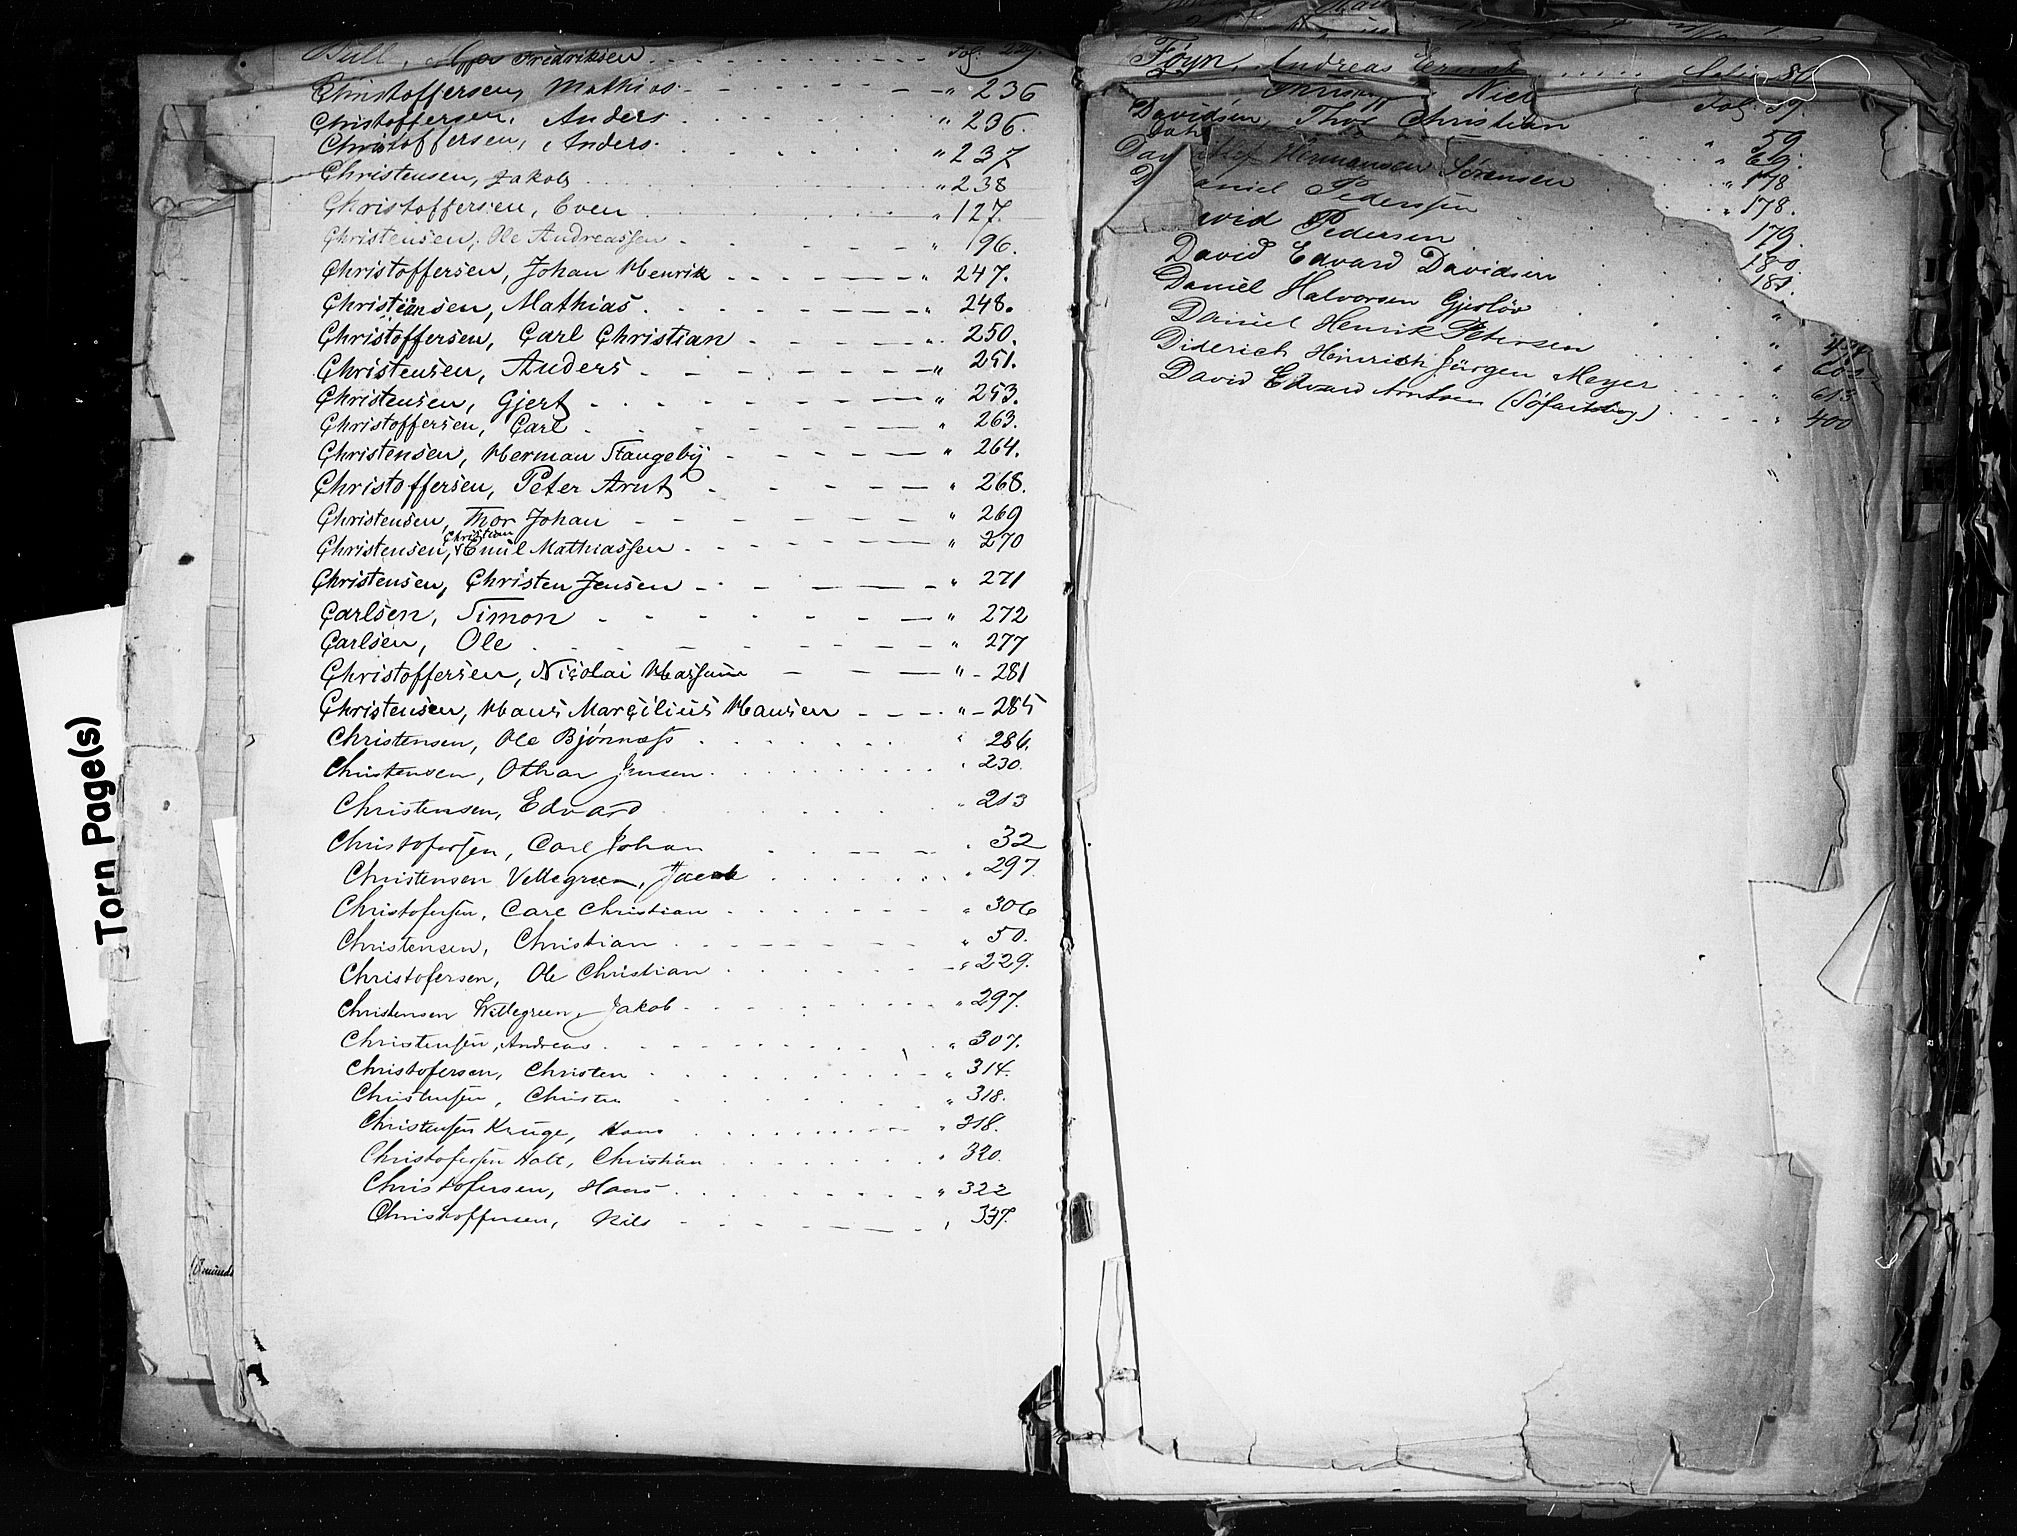 Bull, Fredriksen . . . . Fol. 229.
Christoffersen, Mathias - - - " 236
Christoffersen, Anders . . . " 236.
Christoffersen, Anders . . . " 237
Christensen, Jakob . . . " 238
Christoffersen, Even . . . " 127.
Christensen, Ole Andreassen - " 96.
Christoffersen, Johan Henrik - - - " 247.
Christiansen, Mathias . - - - " 248.
Christoffersen, Carl Christian - - - " 250.
Christensen, Anders - - - " 251.
Christensen, Gjert - - - " 253.
Christoffersen, Carl - - - " 263.
Christensen, Herman Stangeby - - - " 264.
Christoffersen, Peter Arnt - - - " 268.
Christensen, Thor Johan - - - " 269
Christian
Christensen, Emil Mathiassen - - - " 270
Christensen, Christen Jensen - - - " 271
Carlsen, Simon - - - " 272
Carlsen, Ole - - - " 277
Christoffersen, Nicolai - - - " 281
Christensen, Hans Marcilius Hansen - - - " 285
Christensen, Ole Bjønnæss . . . " 286.
Christensen, Othar Jensen . . . " 230.
Christensen, Edvard . . . " 213
Christofersen, Carl Johan - - - " 32
Christensen Vettegreen, Jacob . . . " 297.
Christofersen, Carl Christian . . . " 306
Christensen, Christian . . . " 50.
Christofersen, Ole Christian . . . " 229.
Christensen Wettegreen, Jakob . . . " 297.
Christensen, Andreas . . . " 307.
Christofersen, Christen . . . " 314.
Christensen, Christen . . . " 318.
Christensen Kruge, Hans . . . " 318.
Christofersen Holt, Christian . . . " 320.
Christofersen, Hans . . . " 322
Christoffersen, Nils - - - " 337.
Torn Page(s)
Føyn, Andreas
Fol. 59.
Davidsen, Thor Christian " 59
Hermansen Sørensen " 178
Daniel Pederssen " 178.
David Pedersen 179.
David Edvard Davidsen 180.
Daniel Halvorsen Gjerløv 181.
Daniel Henrik Petersen
Diderich Heinrich Jürgen Meyer . . . " 613
David Edvard Arntsen . . . " 400